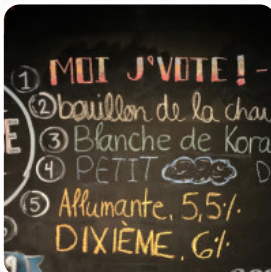 ① MOI J'VOTE! -
② bouillon de la chau
③ Blanche de Kora
④ PETIT D
⑤ Allumante, 5,5%
DIXIÈME, 6%